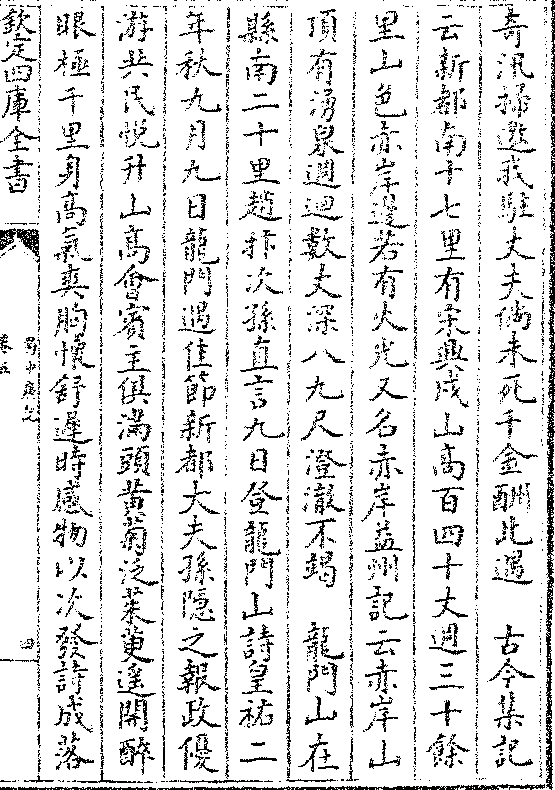 奇汛掃邀我駐丈夫倘未死千金酬此遇　古今集記
云新都南十七里有宋興戍山高百四十丈週三十餘
里山色赤岸邊若有火光又名赤岸益州記云赤岸山
頂有湧泉週迴數丈深八九尺澄澈不竭　龍門山在
縣南二十里趙抃次孫直言九日登龍門山詩皇祐二
年秋九月九日龍門遇佳節新都大夫孫隠之報政優
游共民悦升山高會賓主俱滿頭黄菊泛茱萸遥開醉
眼極千里身高氣爽胸懷舒遲時感物以次發詩成落
欽定四庫全書
蜀中廣記
卷五
四